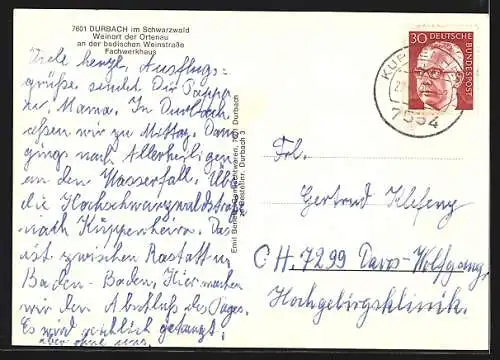 7601 DURBACH im Schwarzwald
Weinort der Ortenau
an der badischen Weinstraße
Fachwerkhaus
Viele herzl. Ausflugs-
grüße sendet Dir Pappa
Mama. In Durbach
aßen wir zu Mittag. Dann
gings nach Allerheiligen
an den Wasserfall. Über
die Hochschwarzwaldstraße
nach Kuppenheim. Das
ist zwischen Rastatt u.
Baden-Baden. Hier machen
wir den Abschluß des Tages.
Es wird getanzt,
aber ohne uns.
7601 Durbach
Bestellnr. Durbach 3
30 DEUTSCHE BUNDESPOST
KUPP
7554
Frl.
Gertrud
CH. 7299 Davos-Wolfgang
Hochgebirgsklinik.